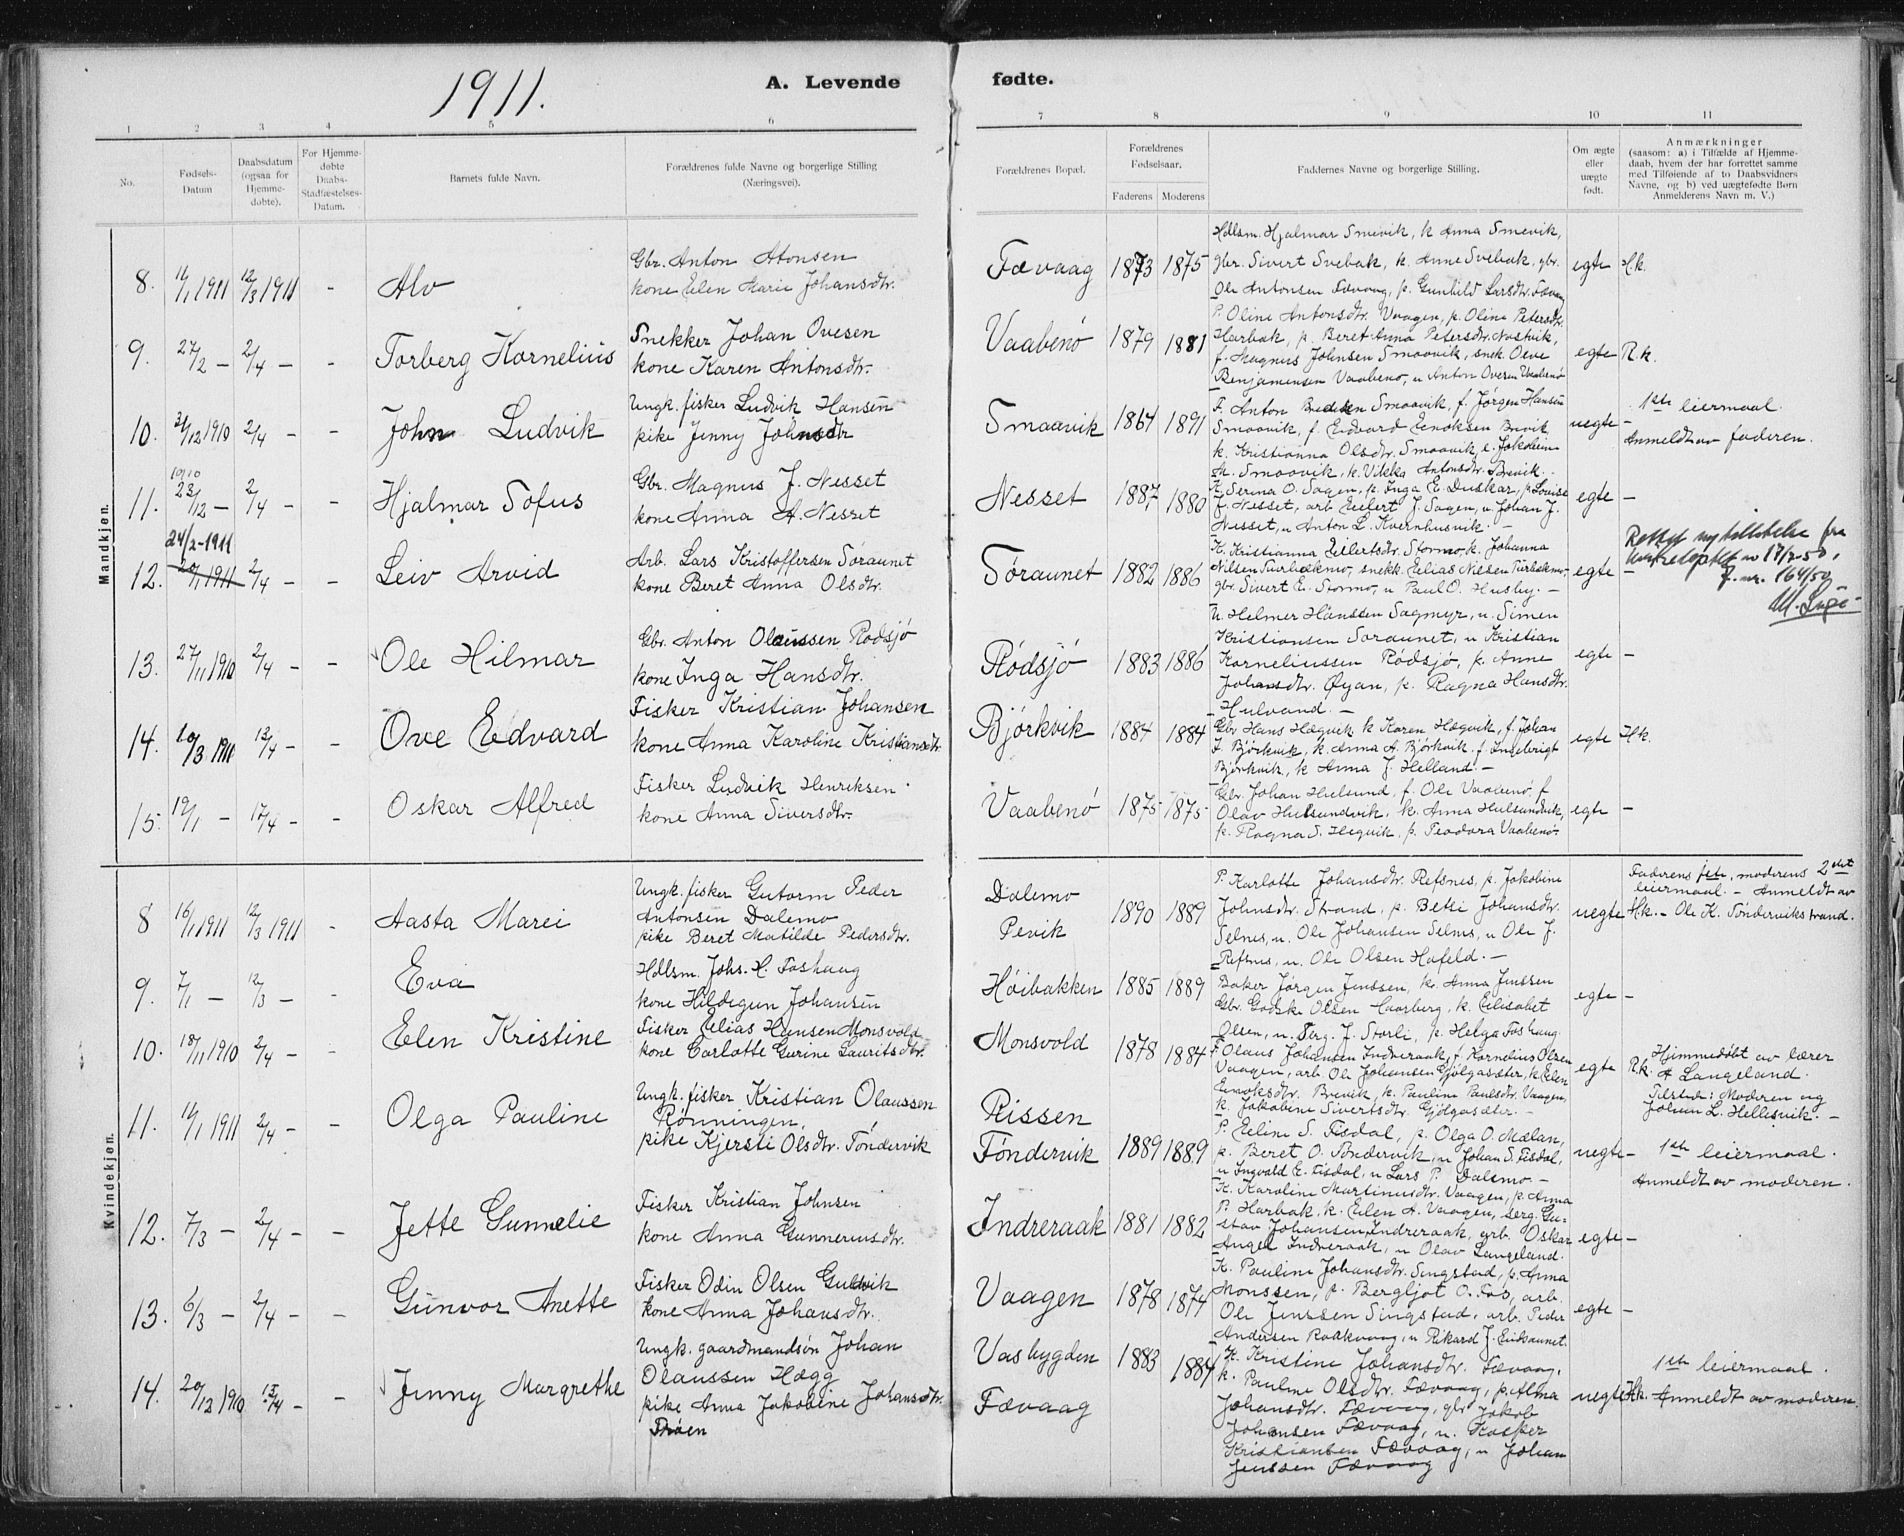 1911.
A. Levende fødte.
1 2 3 4 5 6 7 8 9 10 11
No.
Fødsels-
Datum
Daabsdatum
(ogsaa for
Hjemme-
døbte).
For Hjemme-
døbte
Daabs-
Stadfæstelses-
Datum.
Barnets fulde Navn.
Forældrenes fulde Navne og borgerlige Stilling
(Næringsvei).
Forældrenes Bopæl.
Forældrenes
Fødselsaar.
Faderens Moderens
Faddernes Navne og borgerlige Stilling.
Om ægte
eller
uægte
født.
Anmærkninger
(saasom: a) i Tilfælde af Hjemme-
daab, hvem der har forrettet samme
med Tilføiende af to Daabsvidners
Navne, og b) ved uægtefødte Børn
Anmelderens Navn m. V.)
Mandkjøn.
8. 11/1 1911 12/3 1911 - Alv
Gbr. Anton Atonsen
kone Elen Marie Johansdtr.
Fævaag 1873 1875
Hdlsm. Hjalmar Smevik, k Anna Smevik,
gbr. Sivert Svebak, k. Anne Svebak, gbr.
Ole Antonsen Fævaag, p. Gunhild Larsdtr. Fævaag
egte H.k.
9. 27/2 - 2/4 - - Torberg Kornelius
Snekker Johan Ovesen
kone Karen Antonsdtr.
Vaabenø 1879 1881
P. Oline Antonsdtr. Vaagen, p. Olina Petersdtr.
Harbak, p. Beret Anna Petersdtr. Nastvik,
f. Magnus Johnsen Smaavik, snek. Ove
Benjaminsen Vaabenø, u Anton Ovesen Vaabenø
egte R.k.
10. 31/12 1910 2/4 - - John Ludvik
Ungk. fisker Ludvik Hansen
pike Jenny Johnsdtr
Smaavik 1864 1891
F. Anton Smaavik, f. Jørgen Hansen
Smaavik, f. Edvard Enoksen Brevik
k. Kristianna Olsdtr. Smaavik, e. Jakobine
M. Smaavik, k. Vikka Antonsdtr. Brevik. -
uegte -
1ste leiermaal.
Anmeldt av faderen.
11. 1910 23/12 - 2/4 - - Hjalmar Sofus
Gbr. Magnus J. Nesset
kone Anna A. Nesset
Nesset 1887 1880
K. Serina O. Sagen, p. Inga E. Duskar, p Lovise
J. Nesset, arb Eilert J. Sagen, u. Johan J.
Nesset, u Anton L. Kvernhusvik. -
egte -
24/2-1911
12. 20/1 1911 2/4 - - Leiv Arvid
Arb. Lars Kristoffersen Søraunet
kone Beret Anna Olsdtr.
Søraunet 1882 1886
K. Kristianna Eilertsdtr. Stormo, k. Johanna
Nilsen Surbækmo, snekk. Eelias Nilsen Turbækmo,
gbr. Sivert E. Stormo, u Paul O. Husby. -
egte -
Rettet
av 17/2-50,
J. nr. 164/50
13. 27/11 1910 2/4 - - Ole Hilmar
Gbr. Anton Olaussen Rødsjø
kone Inga Hansdtr.
Rødsjø 1883 1886
U. Helmer Hanssen Sagmyr, u. Simen
Kristiansen Søraunet, u Kristian
Korneliussen Rødsjø, p. Anne
Johansdtr. Øyan, p. Ragna Hansdtr.
Hulvand. -
egte -
14. 10/3 1911 13/4 - - Ove Edvard
Fisker Kristian Johansen
kone Anna Karoline Kristiansdtr
Bjørkvik 1884 1884
Gbr Hans Hægvik k Karen Hægvik, f. Johan
J. Bjørkvik, k. Anna A. Bjørkvik, f. Ingebrigt
Bjørkvik, k Anna J. Helland. -
egte H.k.
15. 19/1 - 17/4 - - Oskar Alfred
Fisker Ludvik Henriksen.
kone Anna Siversdtr.
Vaabenø 1875 1875
Gbr. Johan Hulsund, f. Ole Vaabenø, f
Olav Hulsundvik, k. Anna Hulsundvik,
p. Ragna S. Hegvik, p. Teodora Vaabenø.
egte -
Kvindekjøn.
8 15/1 1911 12/3 1911 - Aasta Marei
Ungk. fisker Gutorm Peder
Antonsen Dalemo
pike Beret Matilde Pedersdtr.
Dalemo
Pevik
1890 1889
P. Karlotte Johansdtr. Refsnes, p. Jakobine
Johnsdtr. Strand, p. Betsi Johansdtr.
Selnes, u. Ole Johansen Selnes, u Ole J.
Refsnes, u. Ole Olsen Hafeld. -
uegte
Faderens 1ste, moderens 2det
leiermaal. - Anmeldt av
H.k. - Ole K. Tøndervikstrand.
9. 7/1 - 12/3 - - Eva
Hdlsm. Johs. H. Foshaug
kone Hildegun Johansen
Høibakken 1885 1889
Baker Jørgen Jenssen, k. Anna Jenssen
Gbr. Godske Olsen Haarberg, k. Eelisabet
Olsen, u. Serg. J. Storli, p. Helga Foshaug.
egte -
10. 18/11 1910 2/4 - - Elen Kristine
Fisker Eelias Hansen Monsvold
kone Carlotte Gurine Lauritsdtr.
Monsvold 1878 1884
F. Olaus Johansen Indreraak, f. Kornelius Olsen
Vaagen, arb. Ole Johansen Gjølgasæter, k Eelen
Enoksdtr. Brevik, k. Pauline Paulsdtr. Vaagen,
k. Jakobine Sivertsdtr. Gjølgasæter. -
egte
Hjemmedøbt av lærer
R.k. A Langeland.
Tilsted: Moderen og
Johan L. Hellesvik. -
11. 14/1 1911 2/4 - - Olga Pauline
Ungk. fisker Kristian Olaussen
Rønningen,
pike Kjersti Olsdtr. Tøndervik
Rissen
Tøndervik 1889 1889
P. Eeline S. Fisdal, p. Olga O. Mælan,
p. Beret O. Tøndervik, u Johan S. Fisdal,
u Ingvald E. Fisdal, u Lars P. Dalemo -
uegte -
1ste leiermaal.
Anmeldt av moderen.
12. 7/3 - 2/4 - - Jette Gunnelie
Fisker Kristian Johnsen
kone Anna Gunneriusdtr.
Indreraak 1881 1882
K. Karoline Martinusdtr. Vaagen, p. Anna
P. Harbak, k. Eelen A. Vaagen, serg. Gu-
stav Johansen Indreraak, arb. Oskar
Angel Indreraak, u Olav Langeland.
egte -
13. 6/3 - 2/4 - - Gunvor Anette
Fisker Odin Olsen Guldvik
kone Anna Johansdtr.
Vaagen 1878 1874
K. Pauline Johansdtr. Singstad, p. Anna
Monssen, p. Bergljot O. Fos, arb.
Ole Jenssen Singstad, arb. Peder
Andersen Raakvaag, u Rikard J. Eriksaunet.
egte -
14. 20/12 1910 17/4 - - Jenny Margrethe
Ungk. gaardmandsøn Johan
Olaussen Hægg
pike Anna Jakobine Johansdtr.
Trøen
Vasbygden
Fævaag
1883 1884
K. Kristine Johansdtr. Fævaag,
k. Pauline Olsdtr. Fævaag, p. Alma
Johansdtr. Fævaag, gbr Jakob
Johansen Fævaag, u. Kasper
Kristiansen Fævaag, u Johan
Jenssen Fævaag
uegte
1ste leiermaal.
H.k. Anmeldt av moderen.